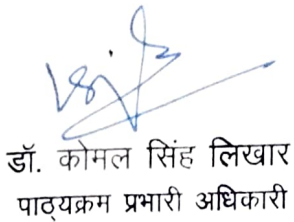 डॉ. कोमल सिंह लिखार
पाठ्यक्रम प्रभारी अधिकारी